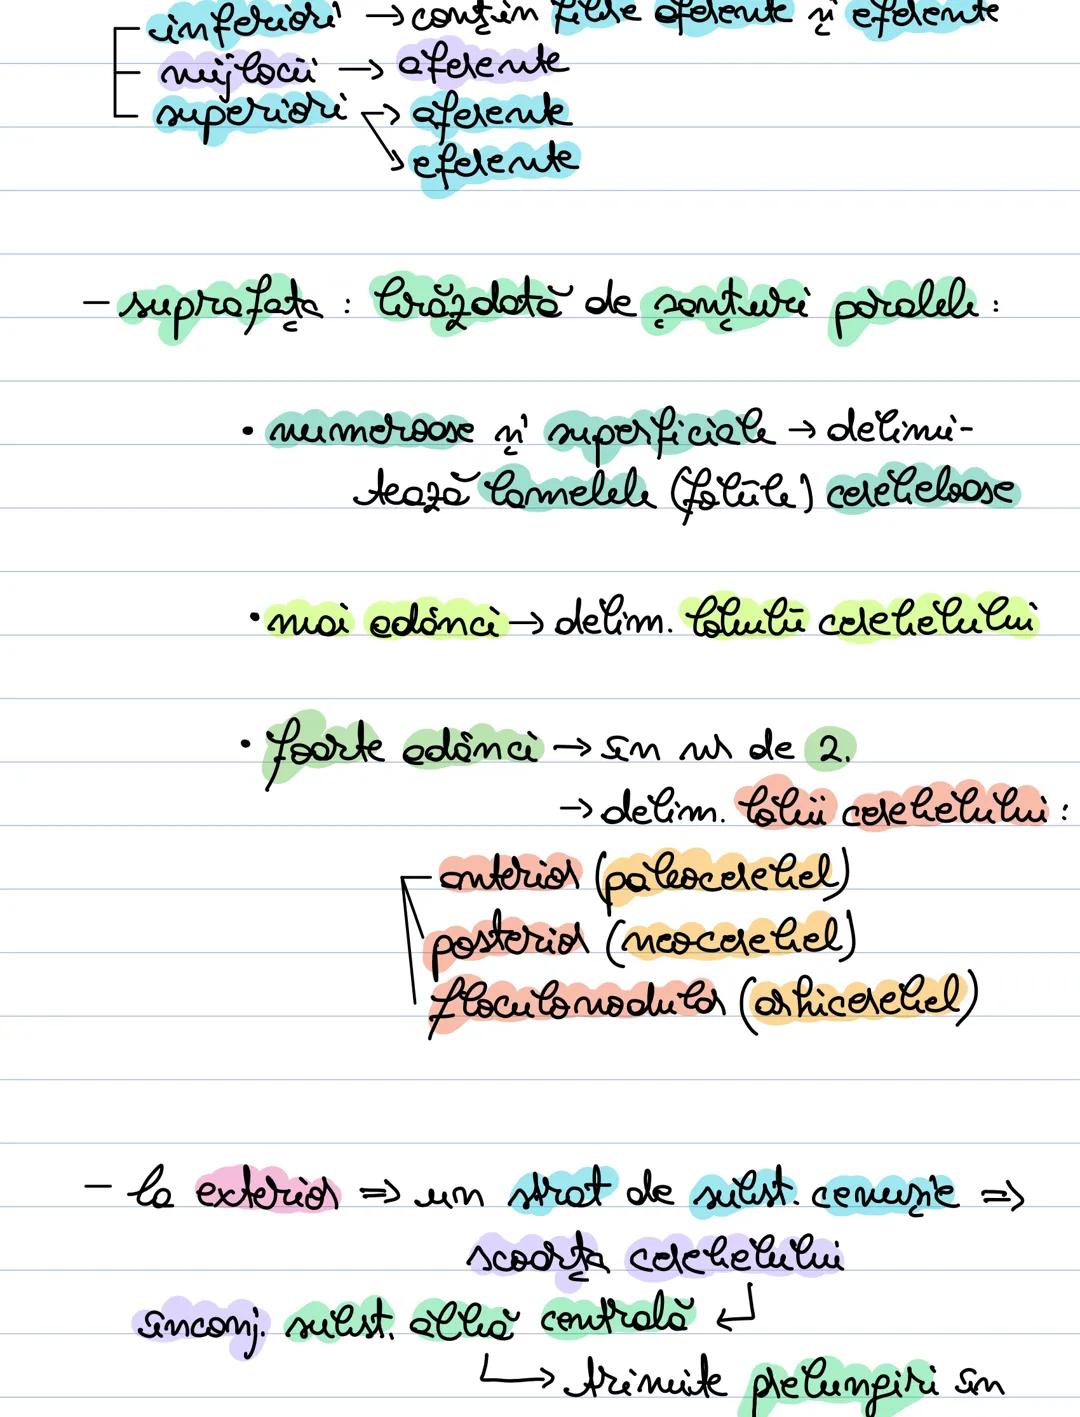 inferiori → conțin fibre aferente și eferente
mijlocii → aferente
superiori → aferente
→ eferente
- suprafața : brăzdată de șanțuri paralele :
• numeroase și superficiale → delimi-
tează lamelele (foliile) cerebeloase
• mai adânci → delim. lobulii cerebelului
• foarte adânci → în nr de 2.
→ delim. lobii cerebelului :
anterior (paleocerebel)
posterior (neocerebel)
floculonodular (arhicerebel)
- la exterior ⇒ un strat de subst. cenușie ⇒
scoarța cerebelului
înconj. subst. albă centrală ↵
↳ trimite prelungiri în